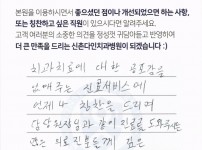 본원을 이용하시면서 좋았던 점이나 개선되었으면 하는 사항,
또는 칭찬하고 싶은 직원이 있으시다면 알려주세요.
고객 여러분의 소중한 의견을 정성껏 귀담아듣고 반영하여
더 큰 만족을 드리는 신촌다인치과병원이 되겠습니다 :)
치과치료에 대한 공포감을
없애주는 진료서비스에
언제나 칭찬을 드리며
담당원장님과 같이 진료를 도와주시는
의료진분들께 깊은